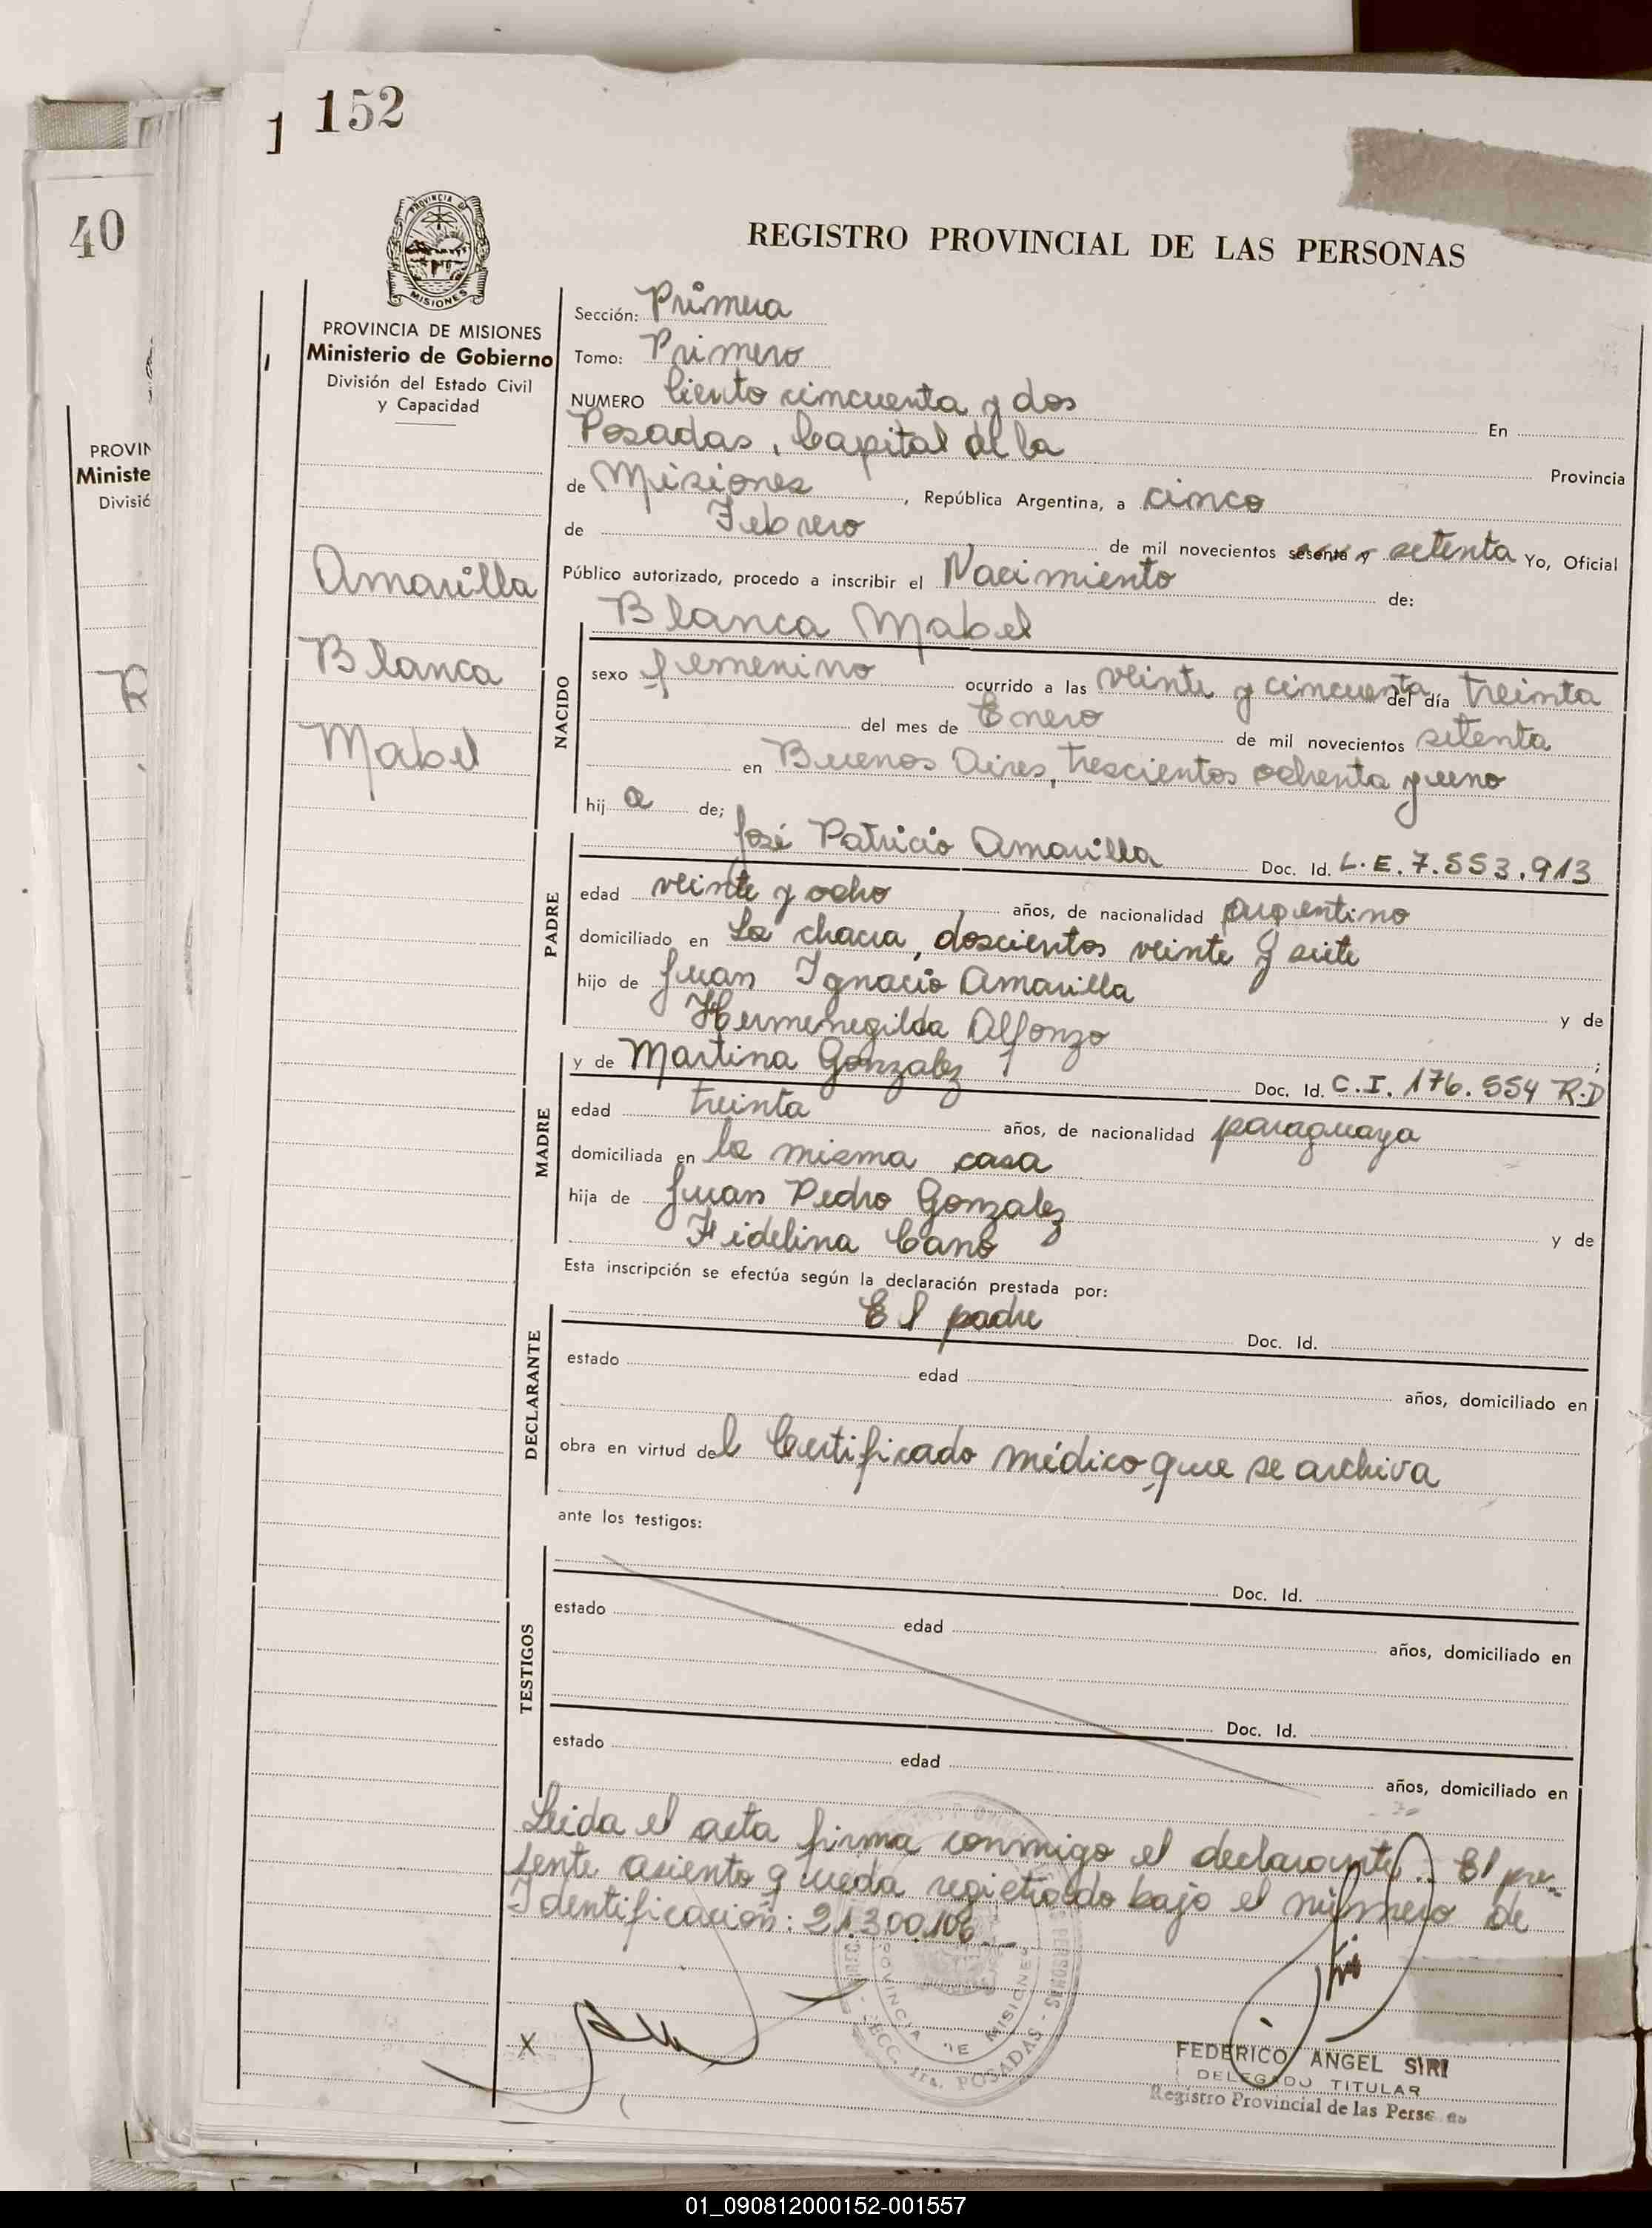 1 152
40
PROVINCIA DE
MISIONES
REGISTRO PROVINCIAL DE LAS PERSONAS
PROVINCIA DE MISIONES
Ministerio de Gobierno
División del Estado Civil
y Capacidad
PROVIN
Ministe
Divisió
R
Amarilla
Blanca
Mabel
Sección: Primera
Tomo: Primero
NUMERO Ciento cincuenta y dos En
Posadas, Capital de la Provincia
de Misiones, República Argentina, a cinco
de Febrero de mil novecientos sesenta y setenta Yo, Oficial
Público autorizado, procedo a inscribir el Nacimiento de:
Blanca Mabel
NACIDO
sexo femenino ocurrido a las veinte y cincuenta del día treinta
del mes de Enero de mil novecientos setenta
en Buenos Aires, trescientos ochenta y uno
hij a de;
José Patricio Amarilla Doc. Id. L.E. 7.553.913
PADRE
edad veinte y ocho años, de nacionalidad argentino
domiciliado en La chacra, doscientos veinte y siete
hijo de Juan Ignacio Amarilla y de
Hermenegilda Alfonzo ;
y de Martina Gonzalez Doc. Id. C.I. 176.554 R.D
MADRE
edad treinta años, de nacionalidad paraguaya
domiciliada en la misma casa
hija de Juan Pedro Gonzalez y de
Fidelina Cano
Esta inscripción se efectúa según la declaración prestada por:
El padre Doc. Id.
DECLARANTE
estado edad años, domiciliado en
obra en virtud del Certificado médico que se archiva
ante los testigos:
Doc. Id.
TESTIGOS
estado edad años, domiciliado en
Doc. Id.
estado edad años, domiciliado en
Leida el acta firma conmigo el declarante. El pre-
sente asiento queda registrado bajo el número de
Identificación: 21.300.106
PROVINCIA DE MISIONES
SECC. 1ra. POSADAS - PERSONAS
X
FEDERICO ANGEL SIRI
DELEGADO TITULAR
Registro Provincial de las Perso as
01_090812000152-001557